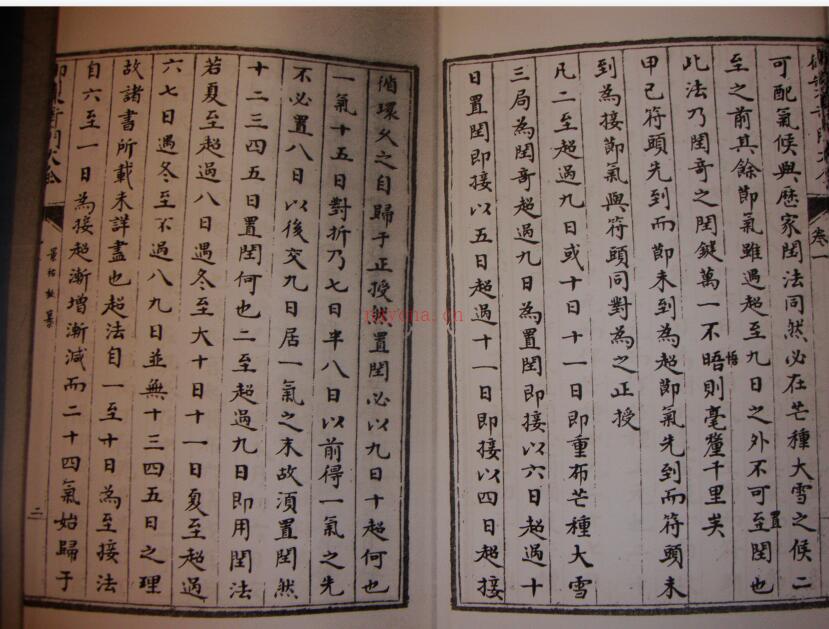 卷一
可配氣候與歷家閏法同然必在芒種大雪之候二
至之前其餘節氣雖遇超至九日之外不可至閏也
置
此法乃閏奇之閏鍵萬一不晤則毫釐千里矣
悟
甲己符頭先到而節未到為超節氣先到而符頭未
到為接節氣與符頭同對為之正授
凡二至超過九日或十日十一日即重布芒種大雪
三局為閏奇超過九日為置閏即接以六日超過十
日置閏即接以五日超過十一日即接以四日超接
循環久之自歸于正授然置閏必以九日十超何也
一氣十五日對折乃七日半八日以前得一氣之先
不必置八日以後交九日居一氣之末故須置閏然
十二三四五日置閏何也二至超過九日即用閏法
若夏至超過八日遇冬至大十日十一日夏至超過
六七日遇冬至不過八九日並無十三四五日之理
故諸書所載未詳盡也超法自一至十日為至接法
自六至一日為接超漸增漸減而二十四氣始歸于
二